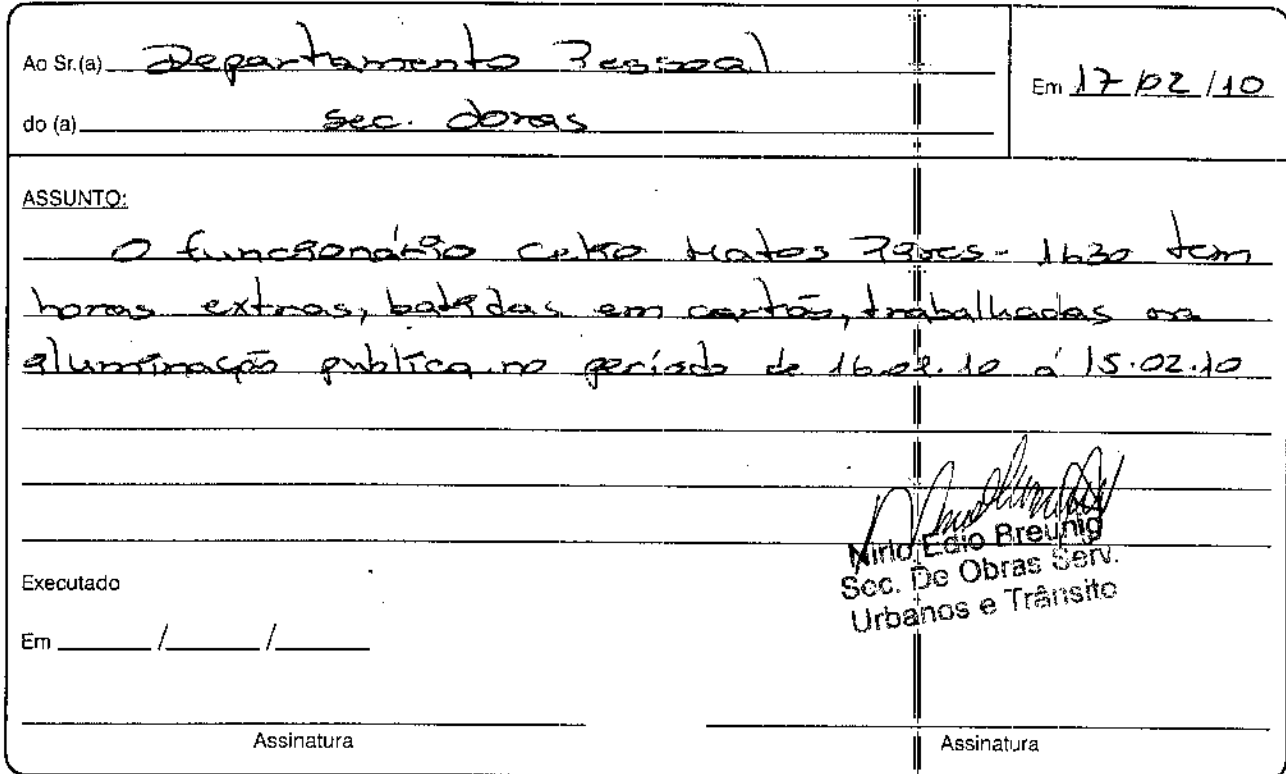 Ao Sr.(a) Departamento Pessoal
Em 17/02/10
do (a) Sec. Obras
ASSUNTO:
O funcionário Celso Matos - 1630 tem
horas extras, batidas em cartão, trabalhadas na
iluminação publica no período de 16.01.10 á 15.02.10
Nirlo Edio Breunig
Sec. De Obras Serv.
Urbanos e Trânsito
Executado
Em / /
Assinatura
Assinatura